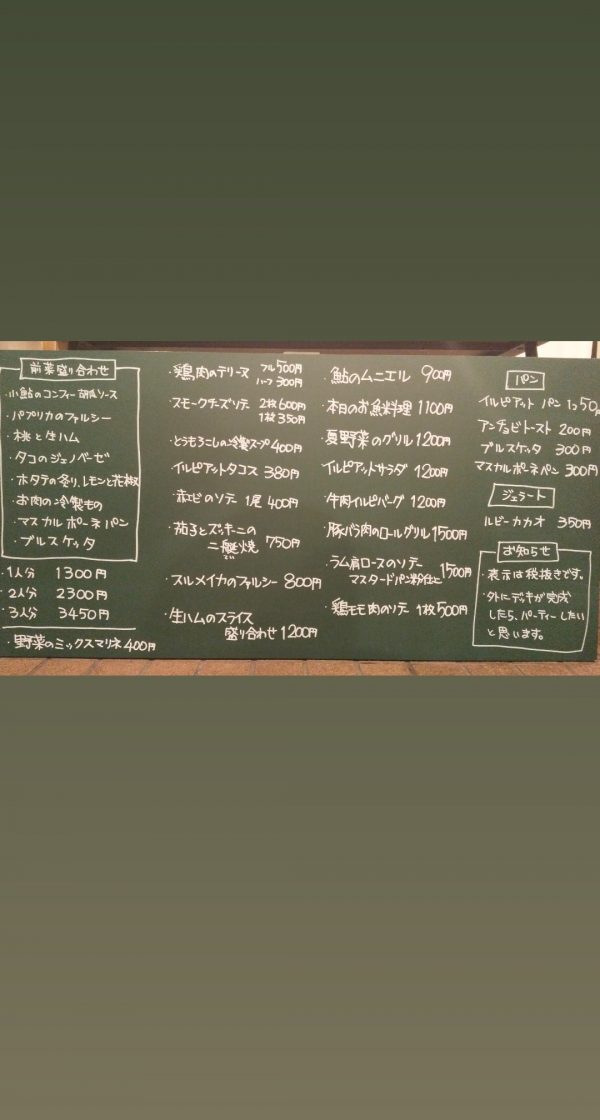 前菜盛り合わせ
・小鮎のコンフィー胡瓜ソース
・パプリカのファルシー
・桃と生ハム
・タコのジェノベーゼ
・ホタテの炙り、レモンと花椒
・お肉の冷製もの
・マスカルポーネパン
・ブルスケッタ
・1人分 1300円
・2人分 2300円
・3人分 3450円
・野菜のミックスマリネ400円
・鶏肉のテリーヌ フル500円
ハーフ300円
・スモークチーズソテー 2枚600円
1枚350円
・とうもろこしの冷製スープ400円
・イルピアットタコス 380円
・赤エビのソテー 1尾400円
・茄子とズッキーニの
二艇焼 750円
・スルメイカのファルシー 800円
・生ハムのスライス
盛り合わせ1200円
・鮎のムニエル 900円
・本日のお魚料理 1100円
・夏野菜のグリル1200円
・イルピアットサラダ 1200円
・牛肉イルピバーグ 1200円
・豚バラ肉のロールグリル1500円
・ラム肩ロースのソテー 1500円
マスタードパン粉仕立
・鶏モモ肉のソテー 1枚500円
パン
イルピアットパン 1コ50円
アンチョビトースト 200円
ブルスケッタ 300円
マスカルポーネパン 300円
ジェラート
ルビーカカオ 350円
お知らせ
・表示は税抜きです。
・外にデッキが完成
したら、パーティーしたい
と思います。